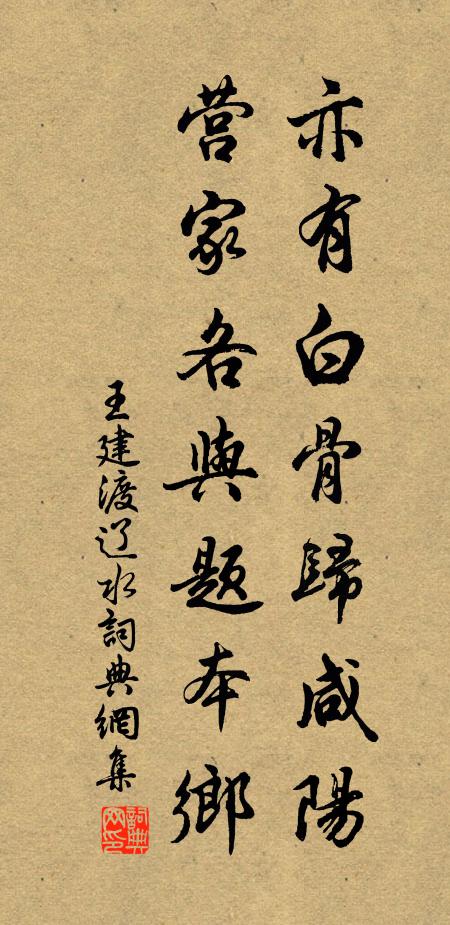 亦有白骨歸咸陽
营家各與题本鄉
王建渡辽水詞典網集
詞典網印